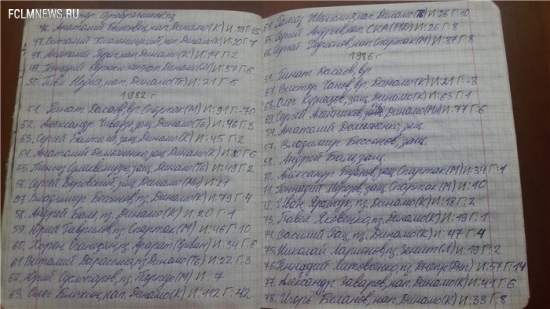 FCLMNEWS.RU
46. Анатолий Бышовец, нап. Динамо(К) И:39 Г:15
47. Виталий Хмельницкий, нап. Динамо(К) И:20 Г:7
48. Анатолий Пузач, нап. Динамо(К)
49. нап. Динамо
50. Гиви Нодия, нап. Динамо(Тб)
1982 г
51. Ринат Дасаев, вр. Спартак(М) И:91 Г:-70
52. Александр Чивадзе, защ. Динамо(Тб) И:46 Г:3
53. Сергей Балтача, защ. Динамо(К) И:45 Г:2
54. Анатолий Демьяненко, защ. Динамо(К) И:80 Г:6
55. Тенгиз Сулаквелидзе, защ. Динамо(Тб) И:49 Г:2
56. Сергей Боровский, защ. Динамо(Мн) И:21
57. Владимир Бессонов, защ. Динамо(К) И:79 Г:4
58. Андрей Баль, пз, Динамо(К) И:20 Г:1
59. Юрий Гаврилов, пз, Спартак(М) И:46 Г:10
60. Хорен Оганесян, пз, Арарат(Ереван) И:34 Г:6
61. Виталий Дараселия, пз, Динамо(Тб) И:22 Г:3
62. Юрий Сусло пз, Торпедо(М) И:7
63. Олег Блохин, нап. Динамо(К) И:112 Г:42
64. Рамаз Шенгелия, нап. Динамо(Тб) И:26 Г:10
65. Сергей Андреев, нап. СКА И:26 Г:8
66. Сергей Родионов, нап. Спартак(М) И:37 Г:8
1986 г.
Ринат Дасаев, вр.
Виктор Чанов, вр. Динамо(К) И:21
Олег Кузнецов, защ. Динамо(К) И:63 Г:1
Сергей Алейников, защ. Динамо(Мн) И:77 Г:6
Анатолий Демьяненко, защ.
Владимир Бессонов, защ.
Андрей Баль, защ
70. Александр Бубнов, защ. Спартак(М) И:34 Г:1
71. Геннадий Морозов, защ. Спартак(М) И:10
72. Иван Яремчук, пз, Динамо(К) И:18 Г:2
73. Павел Яковенко, пз, Динамо(К) И:19 Г:1
74. Василий Рац, пз, Динамо(К) И:47 Г:4
75. Николай Ларионов, пз, Зенит(Л) И:19 Г:2
76. Геннадий Литовченко, пз, Днепр(Днп) И:57 Г:14
77. Александр Заваров, нап. Динамо(К) И:41 Г:6
78. Игорь Беланов, нап. Динамо(К) И:33 Г:8